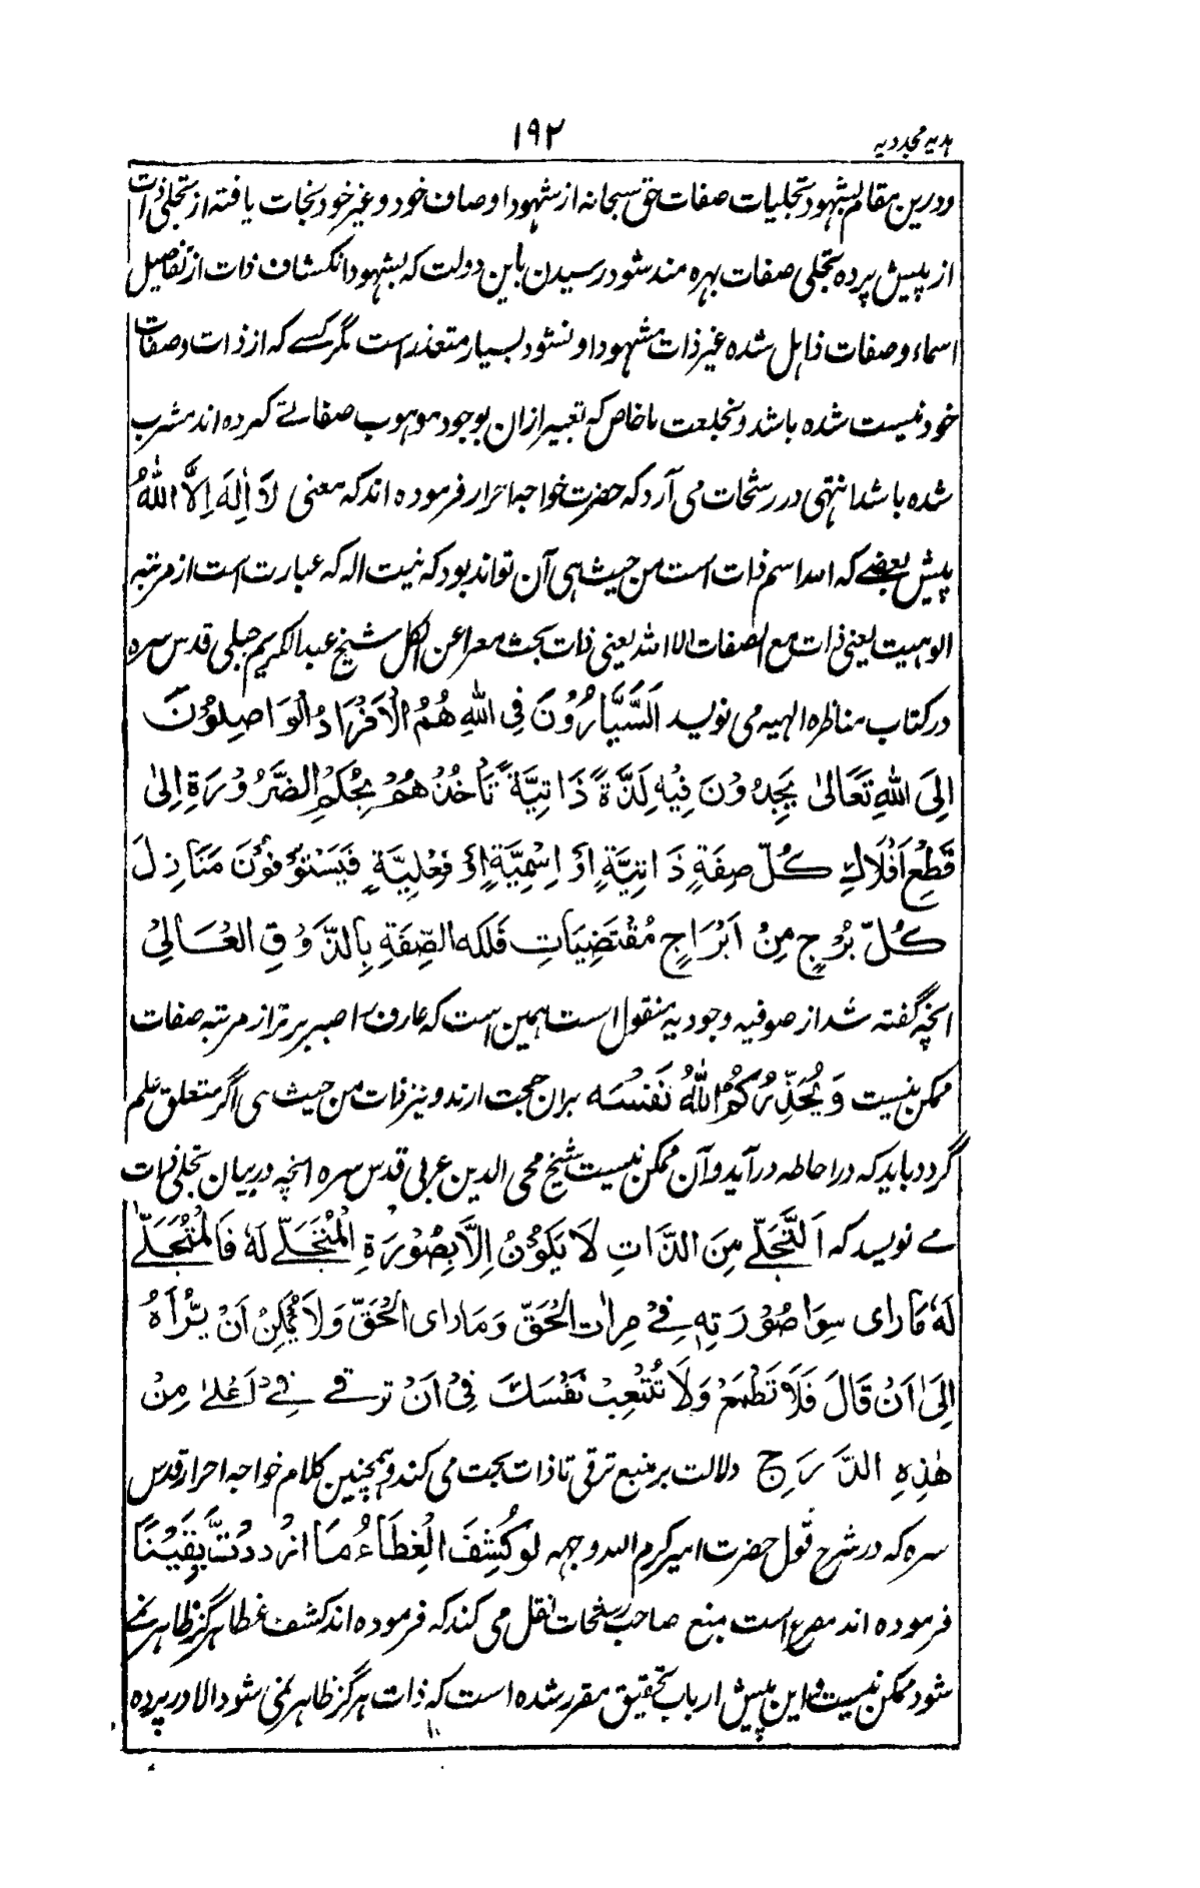 ہدیہ مجددیہ
۱۹۲
ودرین مقام بشہود تجلیات صفات حق سبحانہ از شہود اوصاف خود و غیر خود نجات یافتہ از تجلی ذات
از پیش پردہ تجلی صفات بہرہ مند شود رسیدن باین دولت کہ بشہود انکشاف ذات از تفاصیل
اسماء و صفات ذاہل شدہ غیر ذات مشہود او نشود بسیار متعذر است مگر کسے کہ از ذات و صفات
خود نیست شدہ باشد و بخلعت خاص کہ تعبیر ازان بوجود موہوب صفاتے کردہ اند مشرب
شدہ باشد انتہی در رشحات می آرد کہ حضرت خواجہ احرار فرمودہ اند کہ معنی لَا اِلٰهَ اِلَّا اللهُ
پیش بعضے کہ اللہ اسم ذات است من حیث ہی آن تواند بود کہ نیست الہ کہ عبارت است از مرتبہ
الوہیت یعنی ذات مع الصفات الا اللہ یعنی ذات بحت معرا عن الکل شیخ عبد الکریم جیلی قدس سرہ
در کتاب مناظرہ الہیہ می نویسد اَلسَّيَّارُوْنَ فِی اللهِ هُمُ الْاَفْرَادُ الْوَاصِلُوْنَ
اِلَی اللهِ تَعَالٰی يَجِدُوْنَ فِيْهِ لَذَّةً ذَاتِيَّةً تَاْخُذُهُمْ بِحُكْمِ الضَّرُوْرَةِ اِلٰی
قَطْعِ اَفْلَاكِ كُلِّ صِفَةٍ ذَاتِيَّةٍ اَوْ اِسْمِيَّةٍ اَوْ فِعْلِيَّةٍ فَيَسْتَوْفُوْنَ مَنَازِلَ
كُلِّ بُرْجٍ مِنْ اَبْرَاجِ مُقْتَضِيَاتِ فَلَكِه الصِّفَةِ بِالذَّوْقِ الْعَالِیْ
انچہ گفتہ شد از صوفیہ وجودیہ منقول است ہمین است کہ عارف را صبر برتر از مرتبہ صفات
ممکن نیست وَيُحَذِّرُكُمُ اللهُ نَفْسَه بران حجت ارند و نیز ذات من حیث ہی اگر متعلق علم
گردد باید کہ در احاطہ در آید و آن ممکن نیست شیخ محی الدین عربی قدس سرہ انچہ در بیان تجلی ذات
مے نویسد کہ اَلتَّجَلِّے مِنَ الذَّاتِ لَا يَكُوْنُ اِلَّا بِصُوْرَةِ الْمُتَجَلّٰے لَهٗ فَالْمُتَجَلّٰے
لَهٗ مَا رای سِوَا صُوْرَتِهٖ فِےْ مِرَاٰتِ الْحَقِّ وَمَا رای الْحَقَّ وَلَا يُمْكِنُ اَنْ يَّرَاهُ
اِلٰی اَنْ قَالَ فَلَا تَطْمَعْ وَلَا تُتْعِبْ نَفْسَكَ فِیْ اَنْ ترقے فِےْ اَعْلٰے مِنْ
هٰذِهِ الدَّرَجِ دلالت بر منع ترقی تا ذات بحت می کند وہمچنین کلام خواجہ احرار قدس
سرہ کہ در شرح قول حضرت امیر کرم اللہ وجہہ لَوْ كُشِفَ الْغِطَاءُ مَا ازْدَدْتُّ يَقِيْنًا
فرمودہ اند مصرع است بمنع صاحب رشحات نقل می کند کہ فرمودہ اند کشف غطا ہرگز ظاہر نمے
شود ممکن نیست و این پیش ارباب تحقیق مقرر شدہ است کہ ذات ہرگز ظاہر نمی شود الا در پردہ